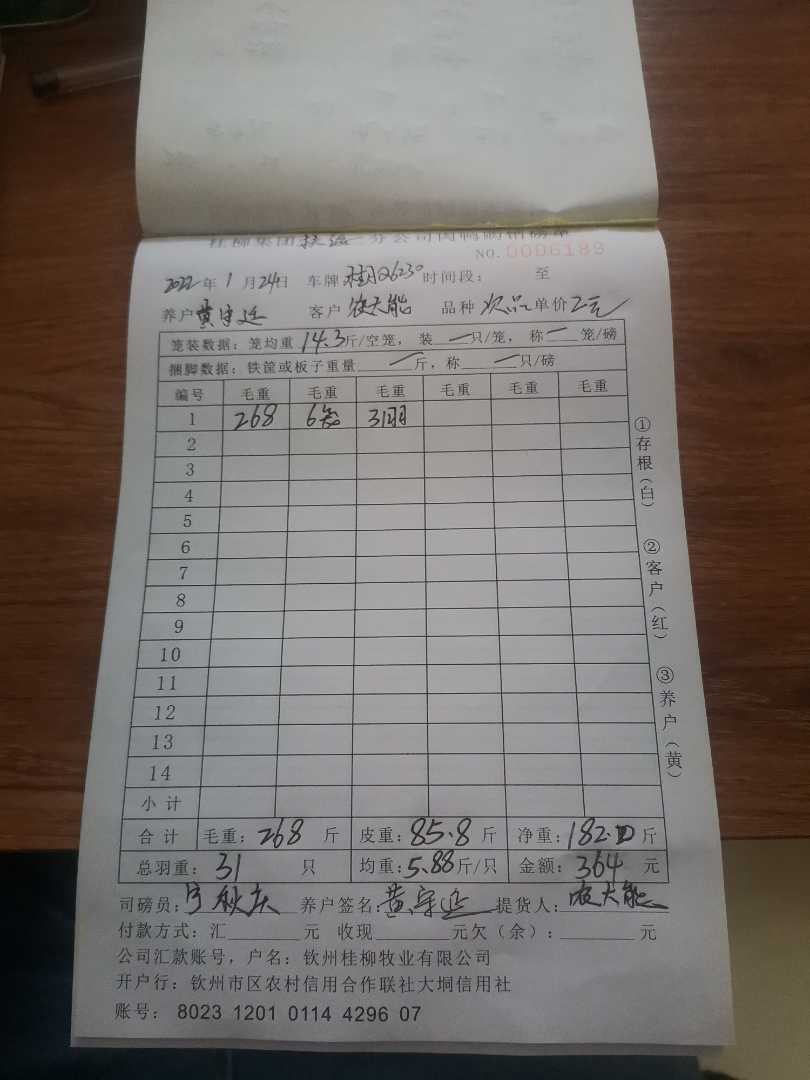 桂柳集团扶绥一分公司肉鸭销磅单
NO.0006189
2022年1月24日 车牌 桂 Q6230 时间段： 至
养户 黄宇延 客户 农大能 品种 次品 单价 2元
笼装数据：笼均重 14.3 斤/空笼，装 一 只/笼，称 一 笼/磅
捆脚数据：铁筐或板子重量 一 斤，称 一 只/磅
编号 毛重 毛重 毛重 毛重 毛重 毛重
1 268 6笼 31羽
2
3
4
5
6
7
8
9
10
11
12
13
14
小计
合计 毛重：268 斤 皮重：85.8 斤 净重：182.0 斤
总羽重：31 只 均重：5.88 斤/只 金额：364 元
司磅员： 养户签名：黄宇延 提货人：农大能
付款方式：汇 元 收现 元欠（余）： 元
公司汇款账号，户名：钦州桂柳牧业有限公司
开户行：钦州市区农村信用合作联社大垌信用社
账号：8023 1201 0114 4296 07
①存根（白）
②客户（红）
③养户（黄）